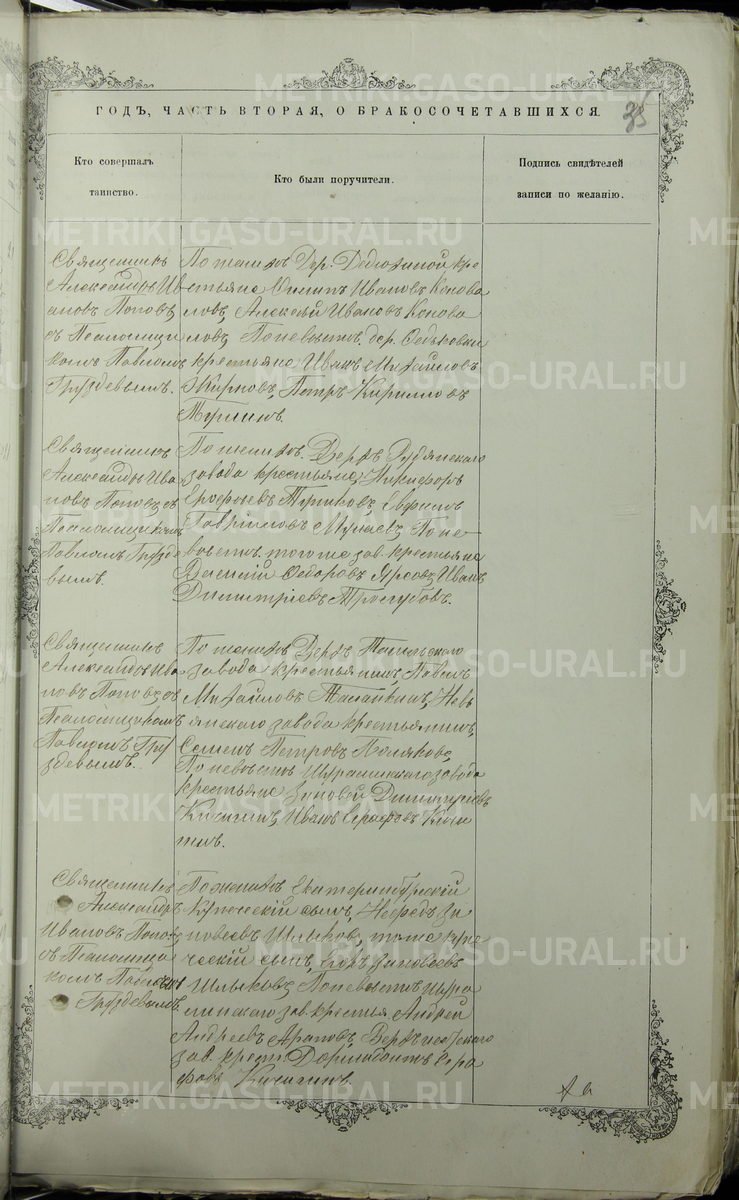 ГОДЪ, ЧАСТЬ ВТОРАЯ, О БРАКОСОЧЕТАВШИХСЯ.
35
Кто совершалъ
таинство.
Кто были поручители.
Подпись свидѣтелей
записи по желанію.
Священникъ
Александръ Ив
ановъ Поповъ
съ Псаломщи
комъ Павломъ
Груздевымъ.
По женихѣ Дер. Дедюхиной кре
стьяне Филипъ Ивановъ Конова
ловъ, Алексѣй Ивановъ Конова
ловъ, По невѣстѣ, дер. Федьковки
крестьяне Иванъ Михайловъ
Жирновъ, Петръ Кирилловъ
Священникъ
Александръ Ива
новъ Поповъ съ
Псаломщикомъ
Павломъ Грузде
вымъ.
По женихѣ. Верхъ Рудянскаго
завода крестьяне, Никифоръ
Ерофѣевъ Ефимъ
Гавріиловъ По не
вѣстѣ. того же зав. крестьяне
Василій Федоровъ Иванъ
Димитріевъ Трегубовъ.
Священникъ
Александръ Ива
новъ Поповъ съ
Псаломщикомъ
Павломъ Гру
здевымъ.
По женихѣ Верхъ Тагильскаго
завода крестьянинъ Павелъ
Михайловъ Невь
янскаго завода крестьянинъ
Семенъ Петровъ Поляковъ,
По невѣстѣ Шуралинскаго завода
крестьяне Зиновій Димитріевъ
Кичигинъ, Иванъ Ерафовъ Кичи
гинъ.
Священникъ
Александръ
Ивановъ Поповъ
съ Псаломщи
комъ Павломъ
Груздевымъ.
По женихѣ Екатеринбургскій
Купеческій сынъ, Нефедъ Зи
новьевъ Шлыковъ, тоже купе
ческій сынъ, Егоръ Зиновьевъ
Шлыковъ, По невѣстѣ Шура
линскаго зав. крестья Андрей
Андреевъ Араповъ, Верхнейвскаго
зав. крест. Дормидонтъ Сера
фовъ Кичигинъ.
METRIKI.GASO-URAL.RU